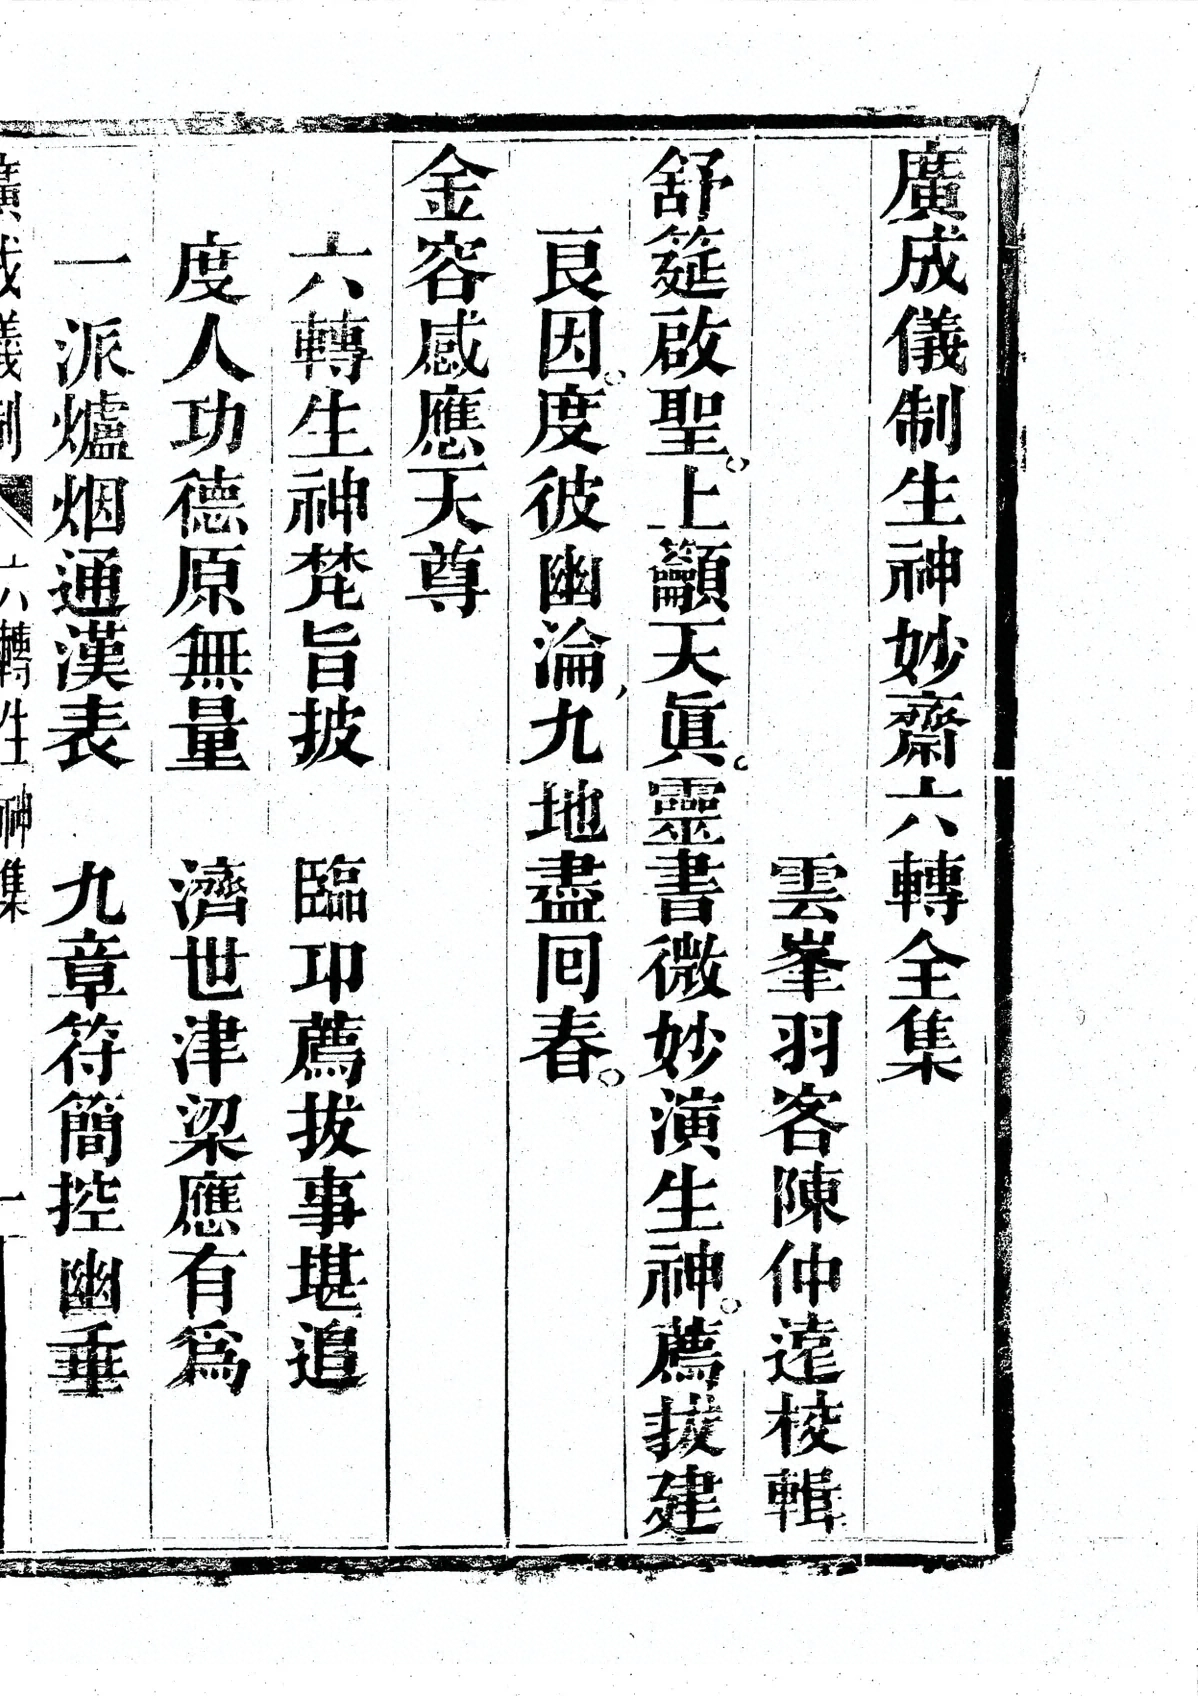 廣成儀制生神妙齋六轉全集
雲峯羽客陳仲遠校輯
舒筵啟聖。上籲天眞。靈書微妙演生神。薦拔建
良因。度彼幽淪、九地盡囘春。
金容感應天尊
六轉生神梵旨披　臨卭薦拔事堪追
度人功德原無量　濟世津梁應有爲
一派爐烟通漢表　九章符簡控幽垂
廣成儀制　六轉生神集　一